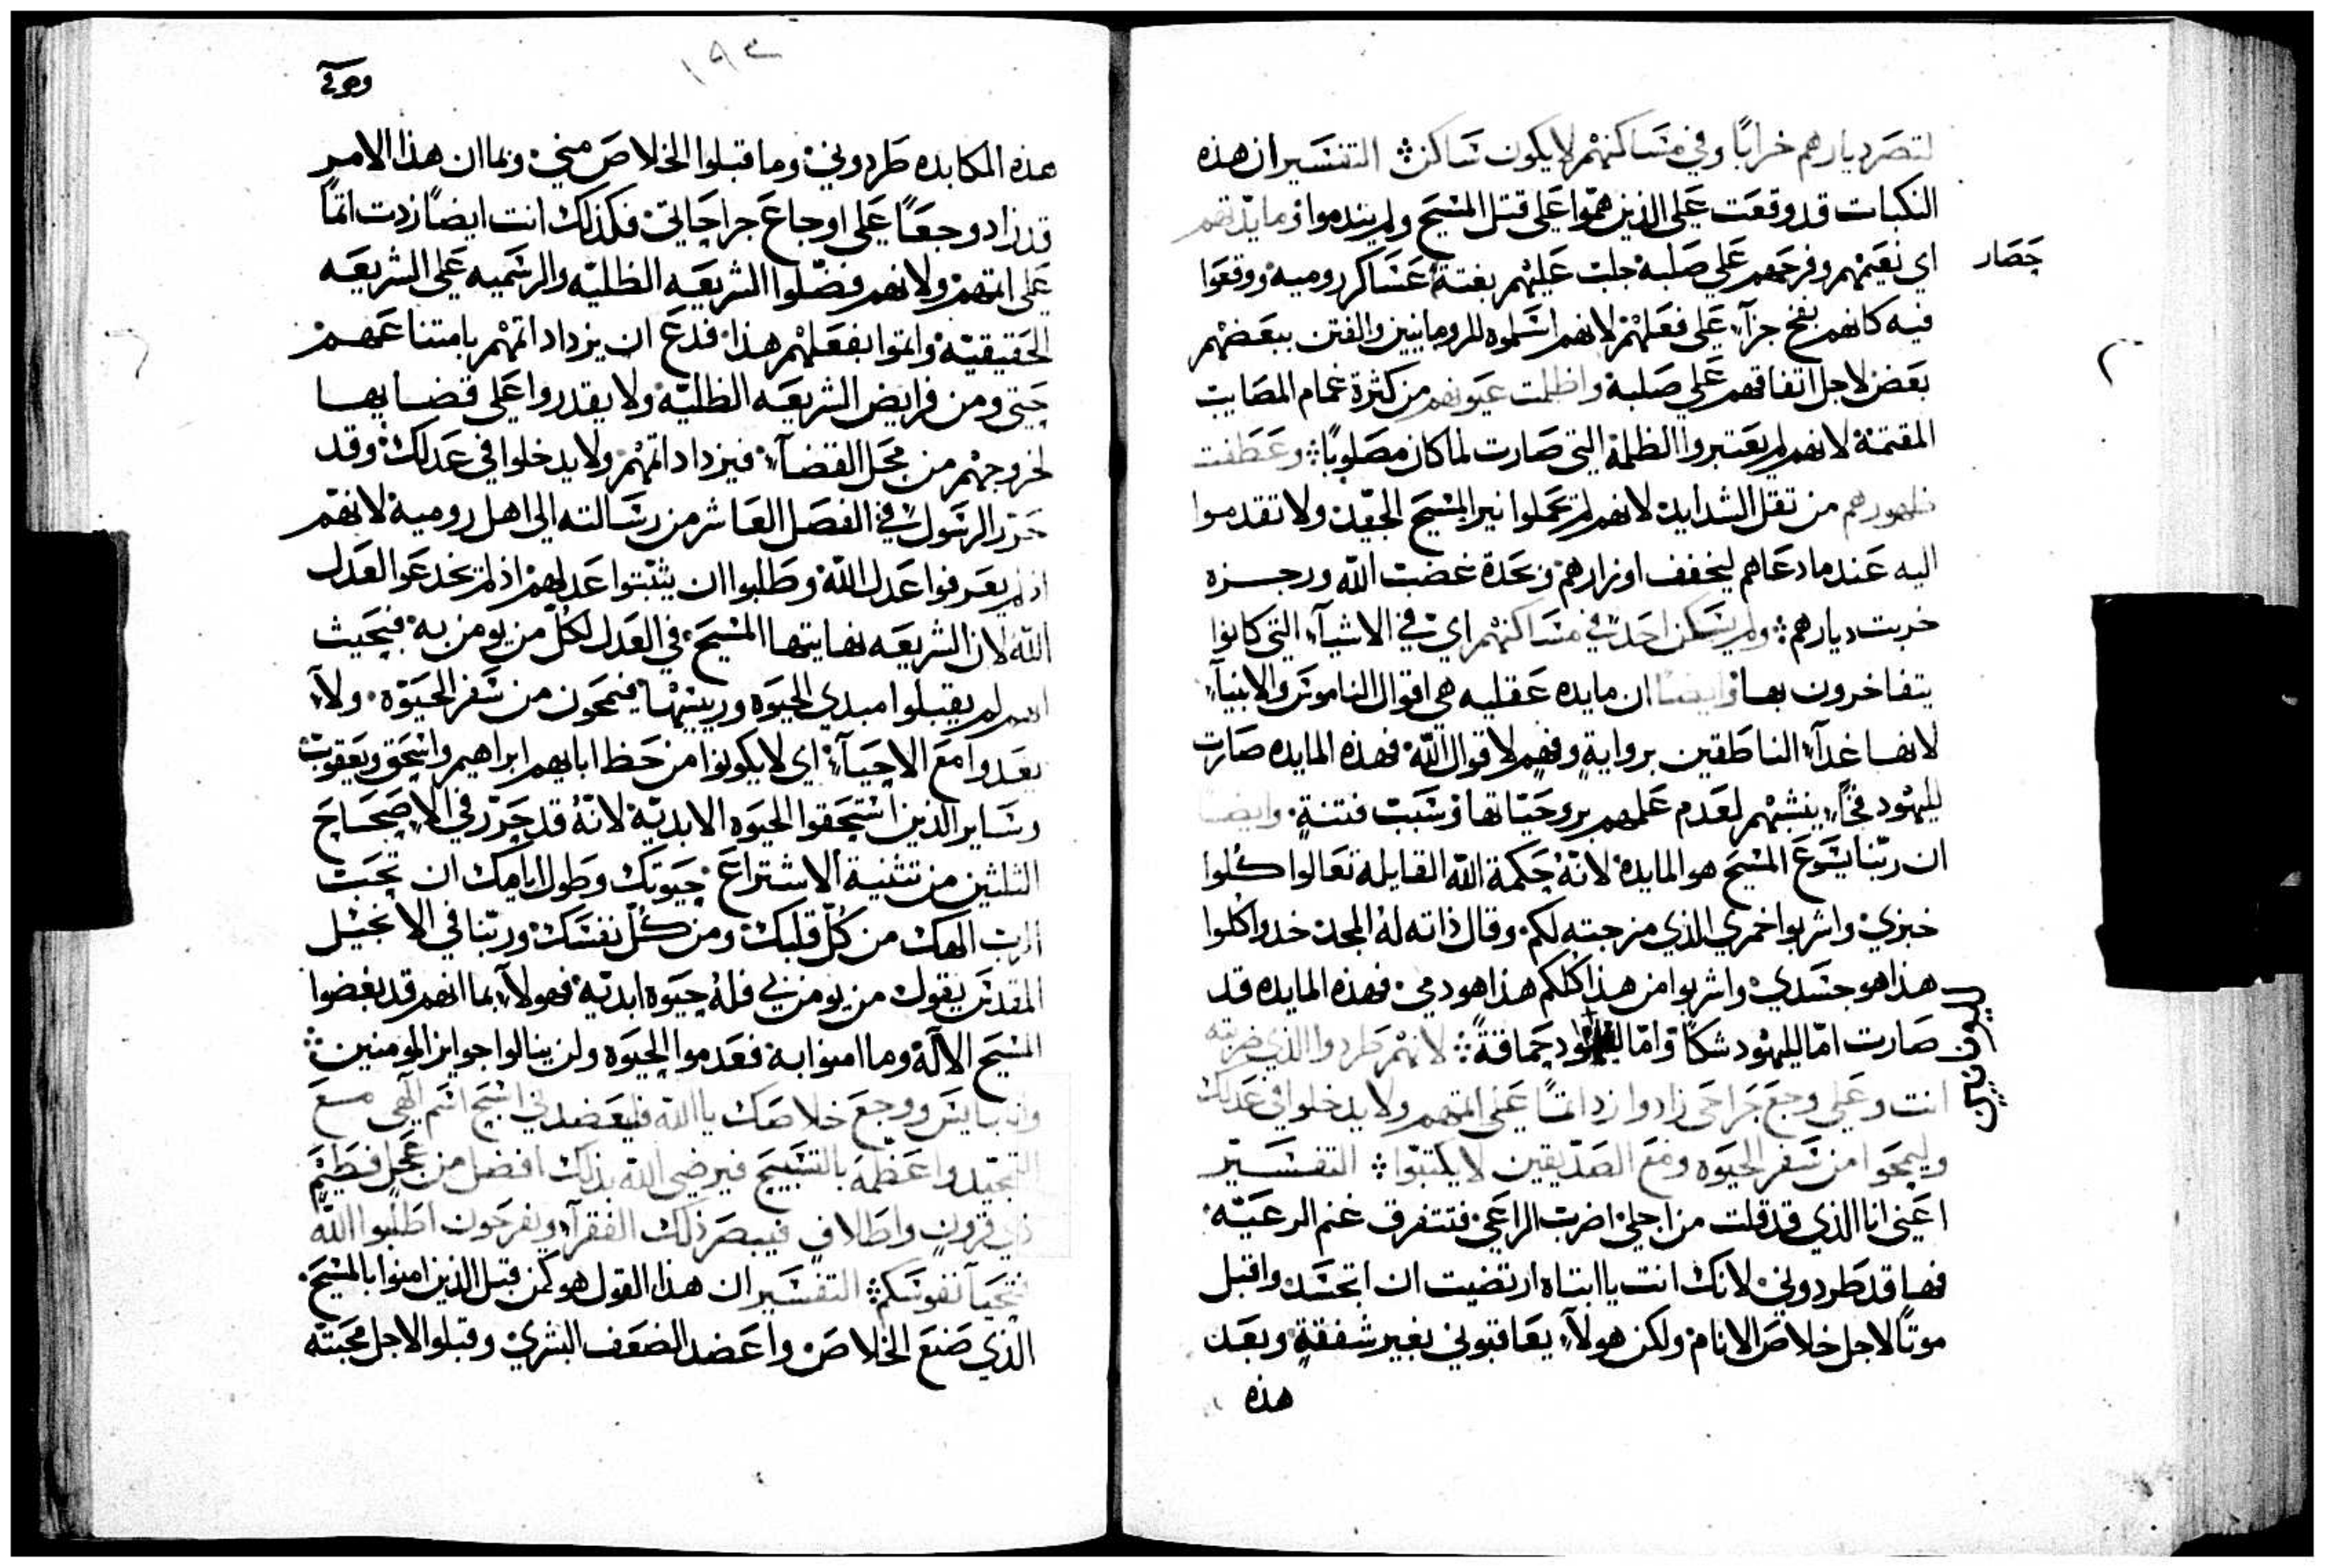 لتصر ديارهم خرابًا وفي مساكنهم لا يكون ساكن ⁘ التفسير ان هذه
النكبات قد وقعت على الذين همّوا على قتل المسيح ولم يندموا فمايدتهم
اي نعيمهم وفرحهم على صلبه جلب عليهم بغتة عساكر رومية ووقعوا
حصار
فيه كانهم بفخ جزآء على فعلهم لانهم اسلموه للرومانيين والفتن ببعضهم
بعض لاجل اتفاقهم على صلبه واظلمت عيونهم من كثرة غمام المصايب
المقتمة لانهم لم يعتبروا الظلمة التي صارت لما كان مصلوبًا ⁘ وعطفت
ظهورهم من ثقل الشدايد لانهم لم تحملوا نير المسيح الجيّد ولا تقدموا
اليه عندما دعاهم ليخفف اوزارهم وبحدة غضب الله ورجزه
خربت ديارهم ⁘ ولم يسكن احد في مساكنهم اي في الاشيآء التي كانوا
يتفاخرون بها وايضًا ان مايده عقليه هي اقوال الناموس والانبيآء
لانها غدآء الناطقين برواية وفهم لاقوال الله فهذه المايده صارت
لليهود فخًّا ينشبهم لعدم علمهم بروحيّاتها وسبب فتنة وايضًا
ان ربّنا يسوع المسيح هو المايدة لانّه حكمة الله القايلة تعالوا كُلوا
خبزي واشربوا خمري الذي مزجته لكم وقال ذاته له المجد خدوا كلوا
هذا هو جسدي واشربوا من هذا كلكم هذا هو دمي فهذه المايده قد
صارت امّا لليهود شكًا وامّا حماقةً ⁘ لانهم طردوا الذي ضربته
لليونانيين
انت وعلى وجع جراحي زادوا زد اثمًا على اثمهم ولا يدخلوا في عدلك
وليمحوا من سفر الحيوه ومع الصدّيقين لا يكتبوا ⁘ التفسير
اعني انا الذي قد قلت من اجلي اضرب الراعي فتتفرق غنم الرعيّه
فها قد طردوني لانك انت يا ابتاه ارتضيت ان اتجسد واقبل
موتًا لاجل خلاص الانام ولكن هولآء يعاقبوني بغير شفقة وبعد
هذه
١٩٤
هذه المكابده طردوني وما قبلوا الخلاص مني وبما ان هذا الامر
قد زاد وجعًا على اوجاع جراحاتي فكذلك انت ايضًا زدت اثمًا
على اثمهم ولانهم فضّلوا الشريعه الظليّه والرسميه على الشريعه
الحقيقيّة واثموا بفعلهم هذا فدع ان يزداد اثمهم بامتناعهم
حتى ومن فرايض الشريعه الظليّه ولا يقدروا على قضايها
لخروجهم من محل القضآء فيزداد اثمهم ولا يدخلوا في عدلك وقد
حرّر الرسول في الفصل العاشر من رسالته الى اهل رومية لانهم
اذ لم يعرفوا عدل الله وطلبوا ان يثبتوا عدلهم اذ لم يخدعوا العدل
الله لان الشريعه نهايتها المسيح في العدل لكلّ من يومن به فبحيث
انهم لم يقبلوا مبدي الحيوه وريسها فيمحون من سفر الحيوة ولا
يعدوا مع الاحيآء اي لا يكونوا من حظ ابايهم ابراهيم واسحق ويعقوب
وساير الذين استحقوا الحيوه الابديّة لانّه قد حرّر في الاصحاح
الثلثين من تثنية الاشتراع حيوتك وطول ايامك ان تحب
الرب الهك من كلّ قلبك ومن كلّ نفسك وربّنا في الانجيل
المقدس يقول من يومن بي فله حيوه ابديّه فهولآء بما انهم قد بغضوا
المسيح الآله وما امنوا به فعدموا الحيوه ولن ينالوا جوايز المومنين ⁘
وانا بايس ووجع خلاصك يا الله فليعضدني اسبح اسم آلهي مع
التمجيد واعظمه بالتسبيح فيرضي الله بذلك افضل من عجل فطيم
ذي قرون واظلاف فيبصر ذلك الفقرآء ويفرحون اطلبوا الله
فتحيآ نفوسكم ⁘ التفسير ان هذا القول هو كمن قبل الذين امنوا بالمسيح
الذي صنع الخلاص واعضد الضعف البشري وقبلوا لاجل محبته